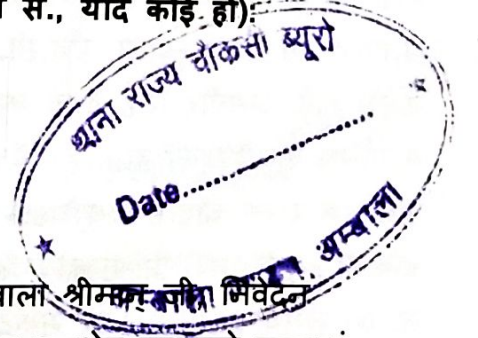 सं., याद कोई हो):
थाना राज्य चौकसी ब्यूरो
Date....................
अम्बाला
वाला श्रीमान जी, निवेदन